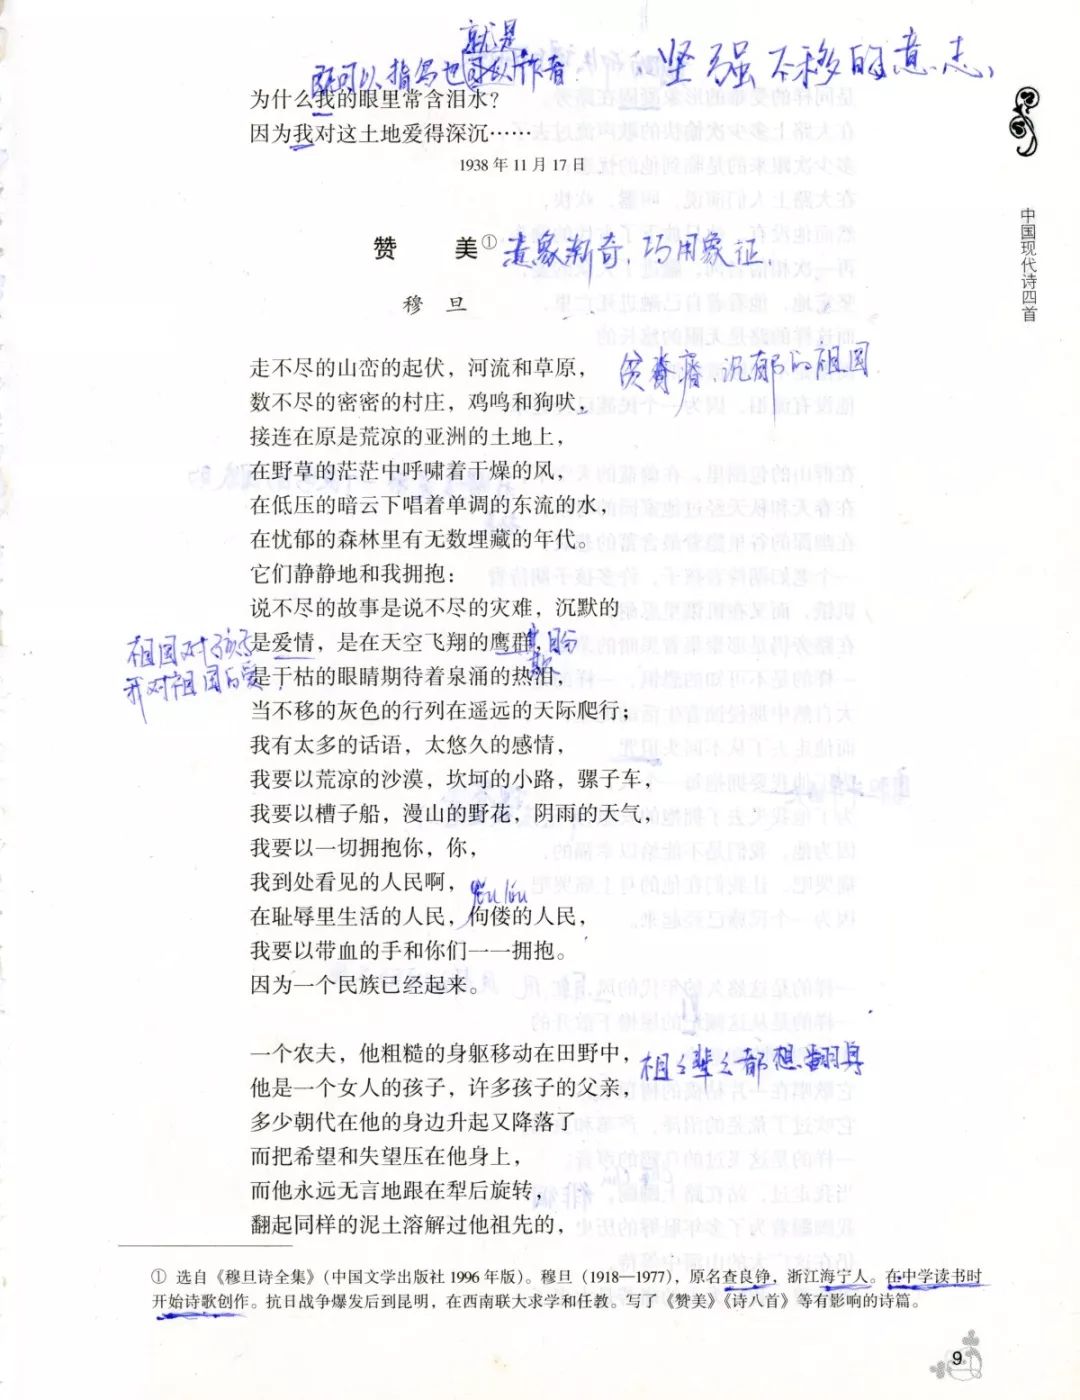 就是
既可以指鸟也可以作者.
坚强不移的意志,
为什么我的眼里常含泪水?
因为我对这土地爱得深沉……
1938年11月17日
中国现代诗四首
赞 美① 意象新奇,巧用象征,
穆 旦
走不尽的山峦的起伏,河流和草原,
贫脊瘠、沉郁的祖国
数不尽的密密的村庄,鸡鸣和狗吠,
接连在原是荒凉的亚洲的土地上,
在野草的茫茫中呼啸着干燥的风,
在低压的暗云下唱着单调的东流的水,
在忧郁的森林里有无数埋藏的年代。
它们静静地和我拥抱:
说不尽的故事是说不尽的灾难,沉默的
是爱情,是在天空飞翔的鹰群,
祖国对孩子
我对祖国的爱,
是干枯的眼睛期待着泉涌的热泪,
当不移的灰色的行列在遥远的天际爬行;
我有太多的话语,太悠久的感情,
我要以荒凉的沙漠,坎坷的小路,骡子车,
我要以槽子船,漫山的野花,阴雨的天气,
我要以一切拥抱你,你,
我到处看见的人民啊,
在耻辱里生活的人民,佝偻的人民,
我要以带血的手和你们一一拥抱。
因为一个民族已经起来。
一个农夫,他粗糙的身躯移动在田野中,
祖々辈々都想翻身
他是一个女人的孩子,许多孩子的父亲,
多少朝代在他的身边升起又降落了
而把希望和失望压在他身上,
而他永远无言地跟在犁后旋转,
翻起同样的泥土溶解过他祖先的,
① 选自《穆旦诗全集》(中国文学出版社1996年版)。穆旦(1918—1977),原名查良铮,浙江海宁人。在中学读书时
开始诗歌创作。抗日战争爆发后到昆明,在西南联大求学和任教。写了《赞美》《诗八首》等有影响的诗篇。
9